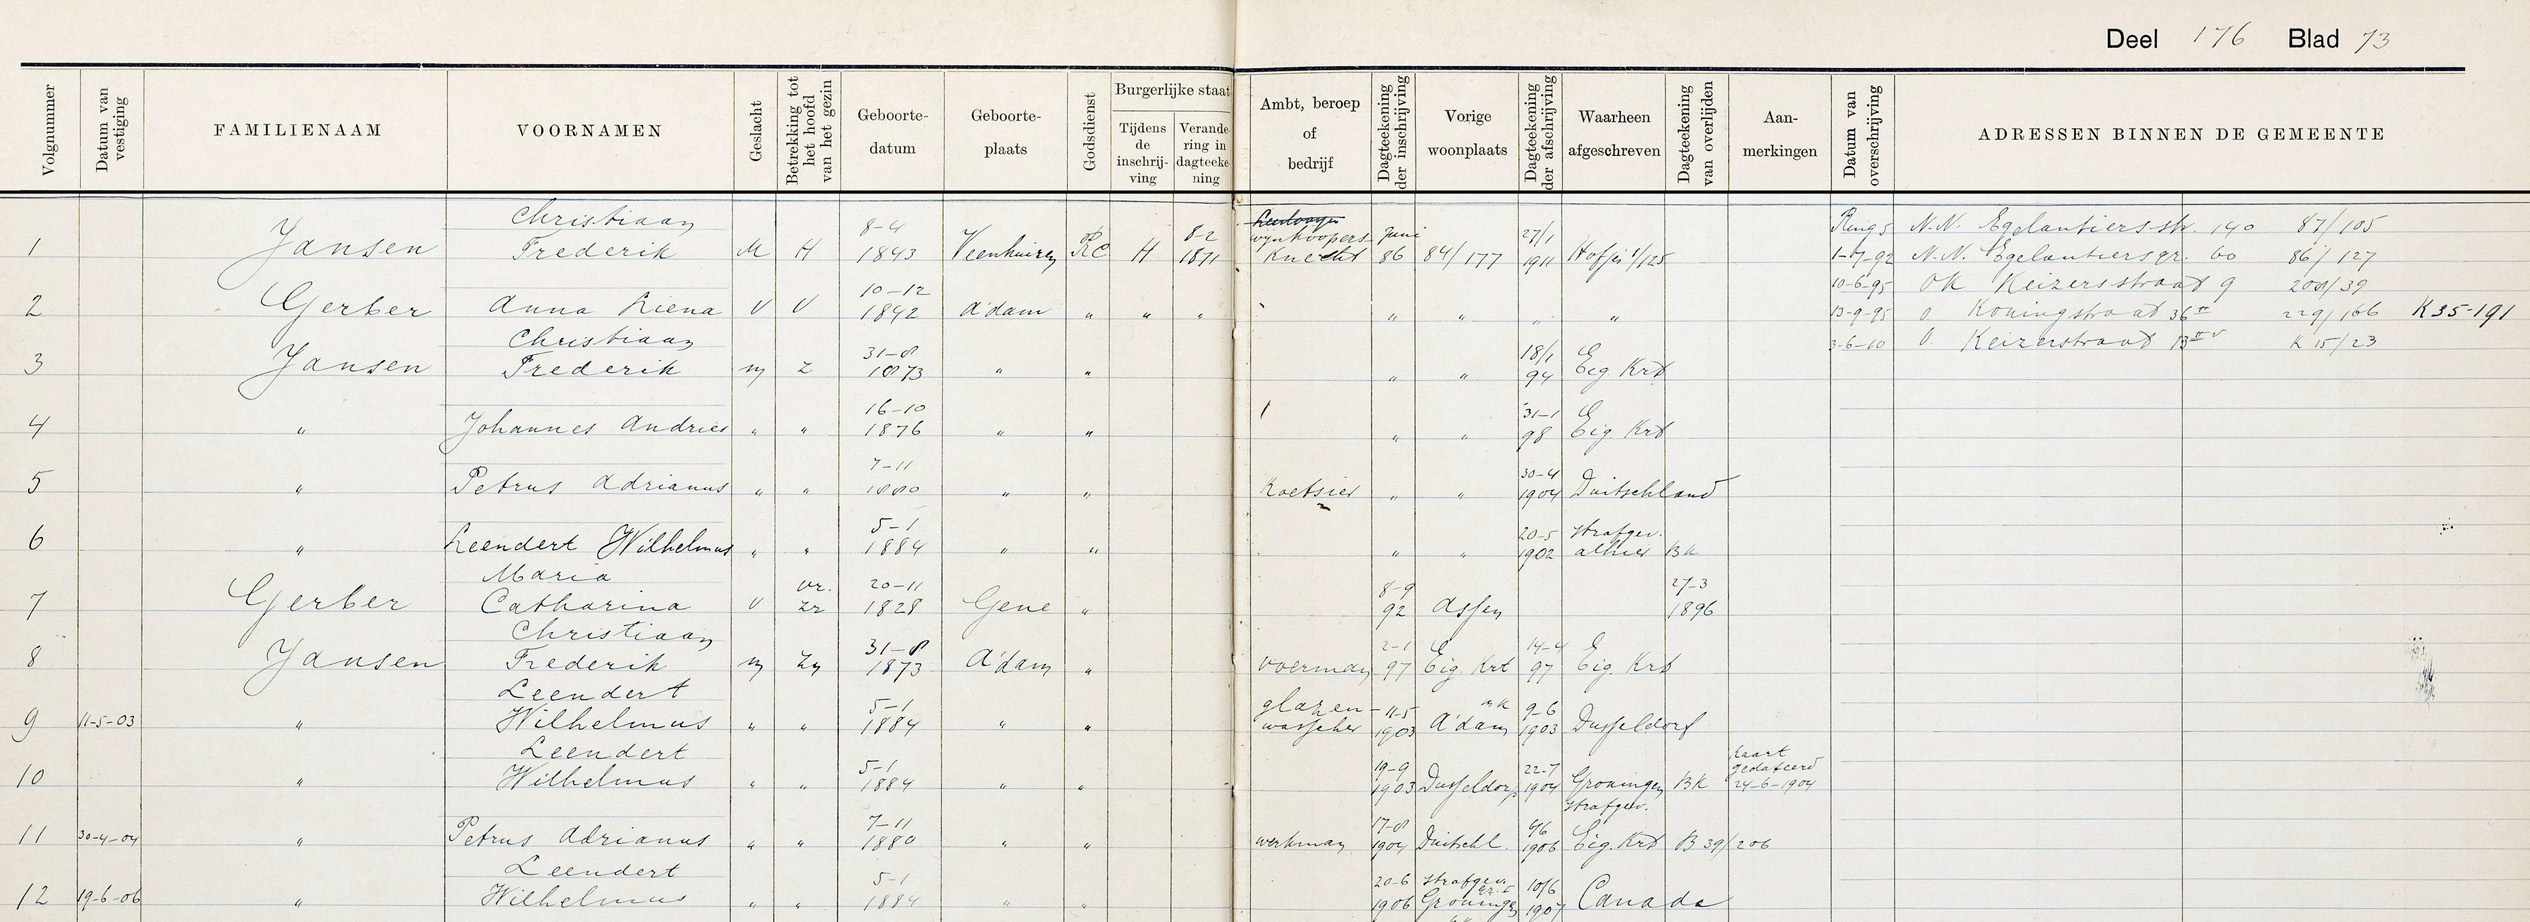 Deel 176 Blad 73
Volgnummer Datum van vestiging FAMILIENAAM VOORNAMEN Geslacht Betrekking tot het hoofd van het gezin Geboorte-datum Geboorte-plaats Godsdienst Burgerlijke staat Tijdens de inschrij-ving Verande-ring in dagteeke-ning Ambt, beroep of bedrijf Dagteekening der inschrijving Vorige woonplaats Dagteekening der afschrijving Waarheen afgeschreven Dagteekening van overlijden Aan-merkingen Datum van overschrijving ADRESSEN BINNEN DE GEMEENTE
1 Jansen Christiaan Frederik M H 8-4 1843 Veenhuizen RC H 8-2 1871 wynkoopers knecht juni 86 84/177 27/1 1911 Hofje 1/125
2 Gerber Anna Riena V V 10-12 1842 A'dam " " " " " " "
3 Jansen Christiaan Frederik m Z 31-8 1873 " " " " 18/1 94 E Eig Krt
4 " Johannes Andries " " 16-10 1876 " " " " 31-1 98 E Eig. Krt
5 " Petrus Adrianus " " 7-11 1880 " " Koetsier " " 30-4 1904 Duitschland
6 " Leendert Wilhelmus " " 5-1 1884 " " " " 20-5 1902 Strafgev. alhier BK
7 Gerber Maria Catharina V vr. Zr 20-11 1828 Gene " 8-9 92 Assen 27-3 1896
8 Jansen Christiaan Frederik m Zn 31-8 1873 A'dam " voerman 2-1 97 E Eig. Krt 14-4 97 E Eig. Krt
9 11-5-03 " Leendert Wilhelmus " " 5-1 1884 " " glazen-wasscher 11-5 1903 A'dam 9-6 1903 Dusseldorf
10 " Leendert Wilhelmus " " 5-1 1884 " " 19-9 1903 Dusseldorp 22-7 1904 Groningen Strafgev. BK kaart gedateerd 24-6-1904
11 30-4-04 " Petrus Adrianus " " 7-11 1880 " " werkman 17-8 1904 Duitschl. 9/6 1906 E Eig. Krt B 39/206
12 19-6-06 " Leendert Wilhelmus " " 5-1 1884 " " 20-6 1906 Strafgev. Gr. I Groningen 10/6 1907 Canada
Ring 5 N.N. Egelantiersstr. 140 87/105
1-7-92 N.N. Egelantiersgr. 60 86/127
10-6-95 OK Keizersstraat 9 200/39
13-9-95 O Koningstraat 36 II 229/166 K35-191
3-6-10 O. Keizerstraat 13 II v K 15/23